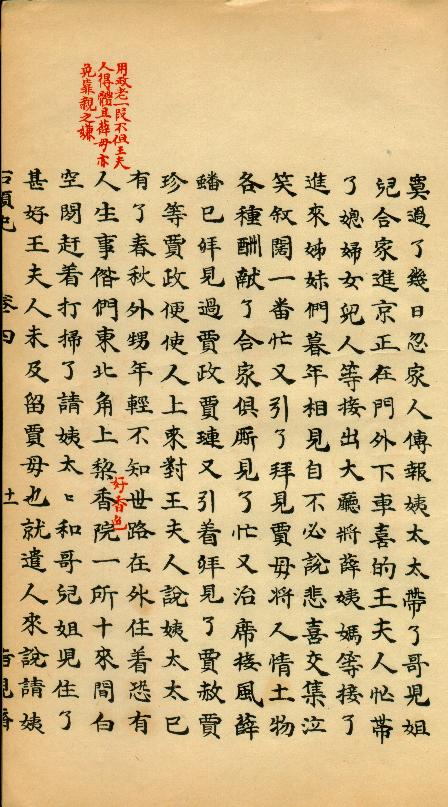 寞過了幾日忽家人傳報姨太太帶了哥兒姐
兒合家進京正在門外下車喜的王夫人忙帶
了媳婦女兒人等接出大廳將薛姨媽等接了
進來姊妹們暮年相見自不必說悲喜交集泣
笑叙闊一番忙又引了拜見賈母將人情土物
各種酬獻了合家俱厮見了忙又治席接風薛
蟠已拜見過賈政賈璉又引着拜見了賈赦賈
珍等賈政便使人上來對王夫人說姨太太已
有了春秋外甥年輕不知世路在外住着恐有
人生事偺們東北角上梨香院一所十來間白
好香色
空閑赶着打掃了請姨太〻和哥兒姐兒住了
甚好王夫人未及留賈母也就遣人來說請姨
用政老一段不但王夫
人得體且薛母亦
免靠親之嫌
石頭記 卷四 十一